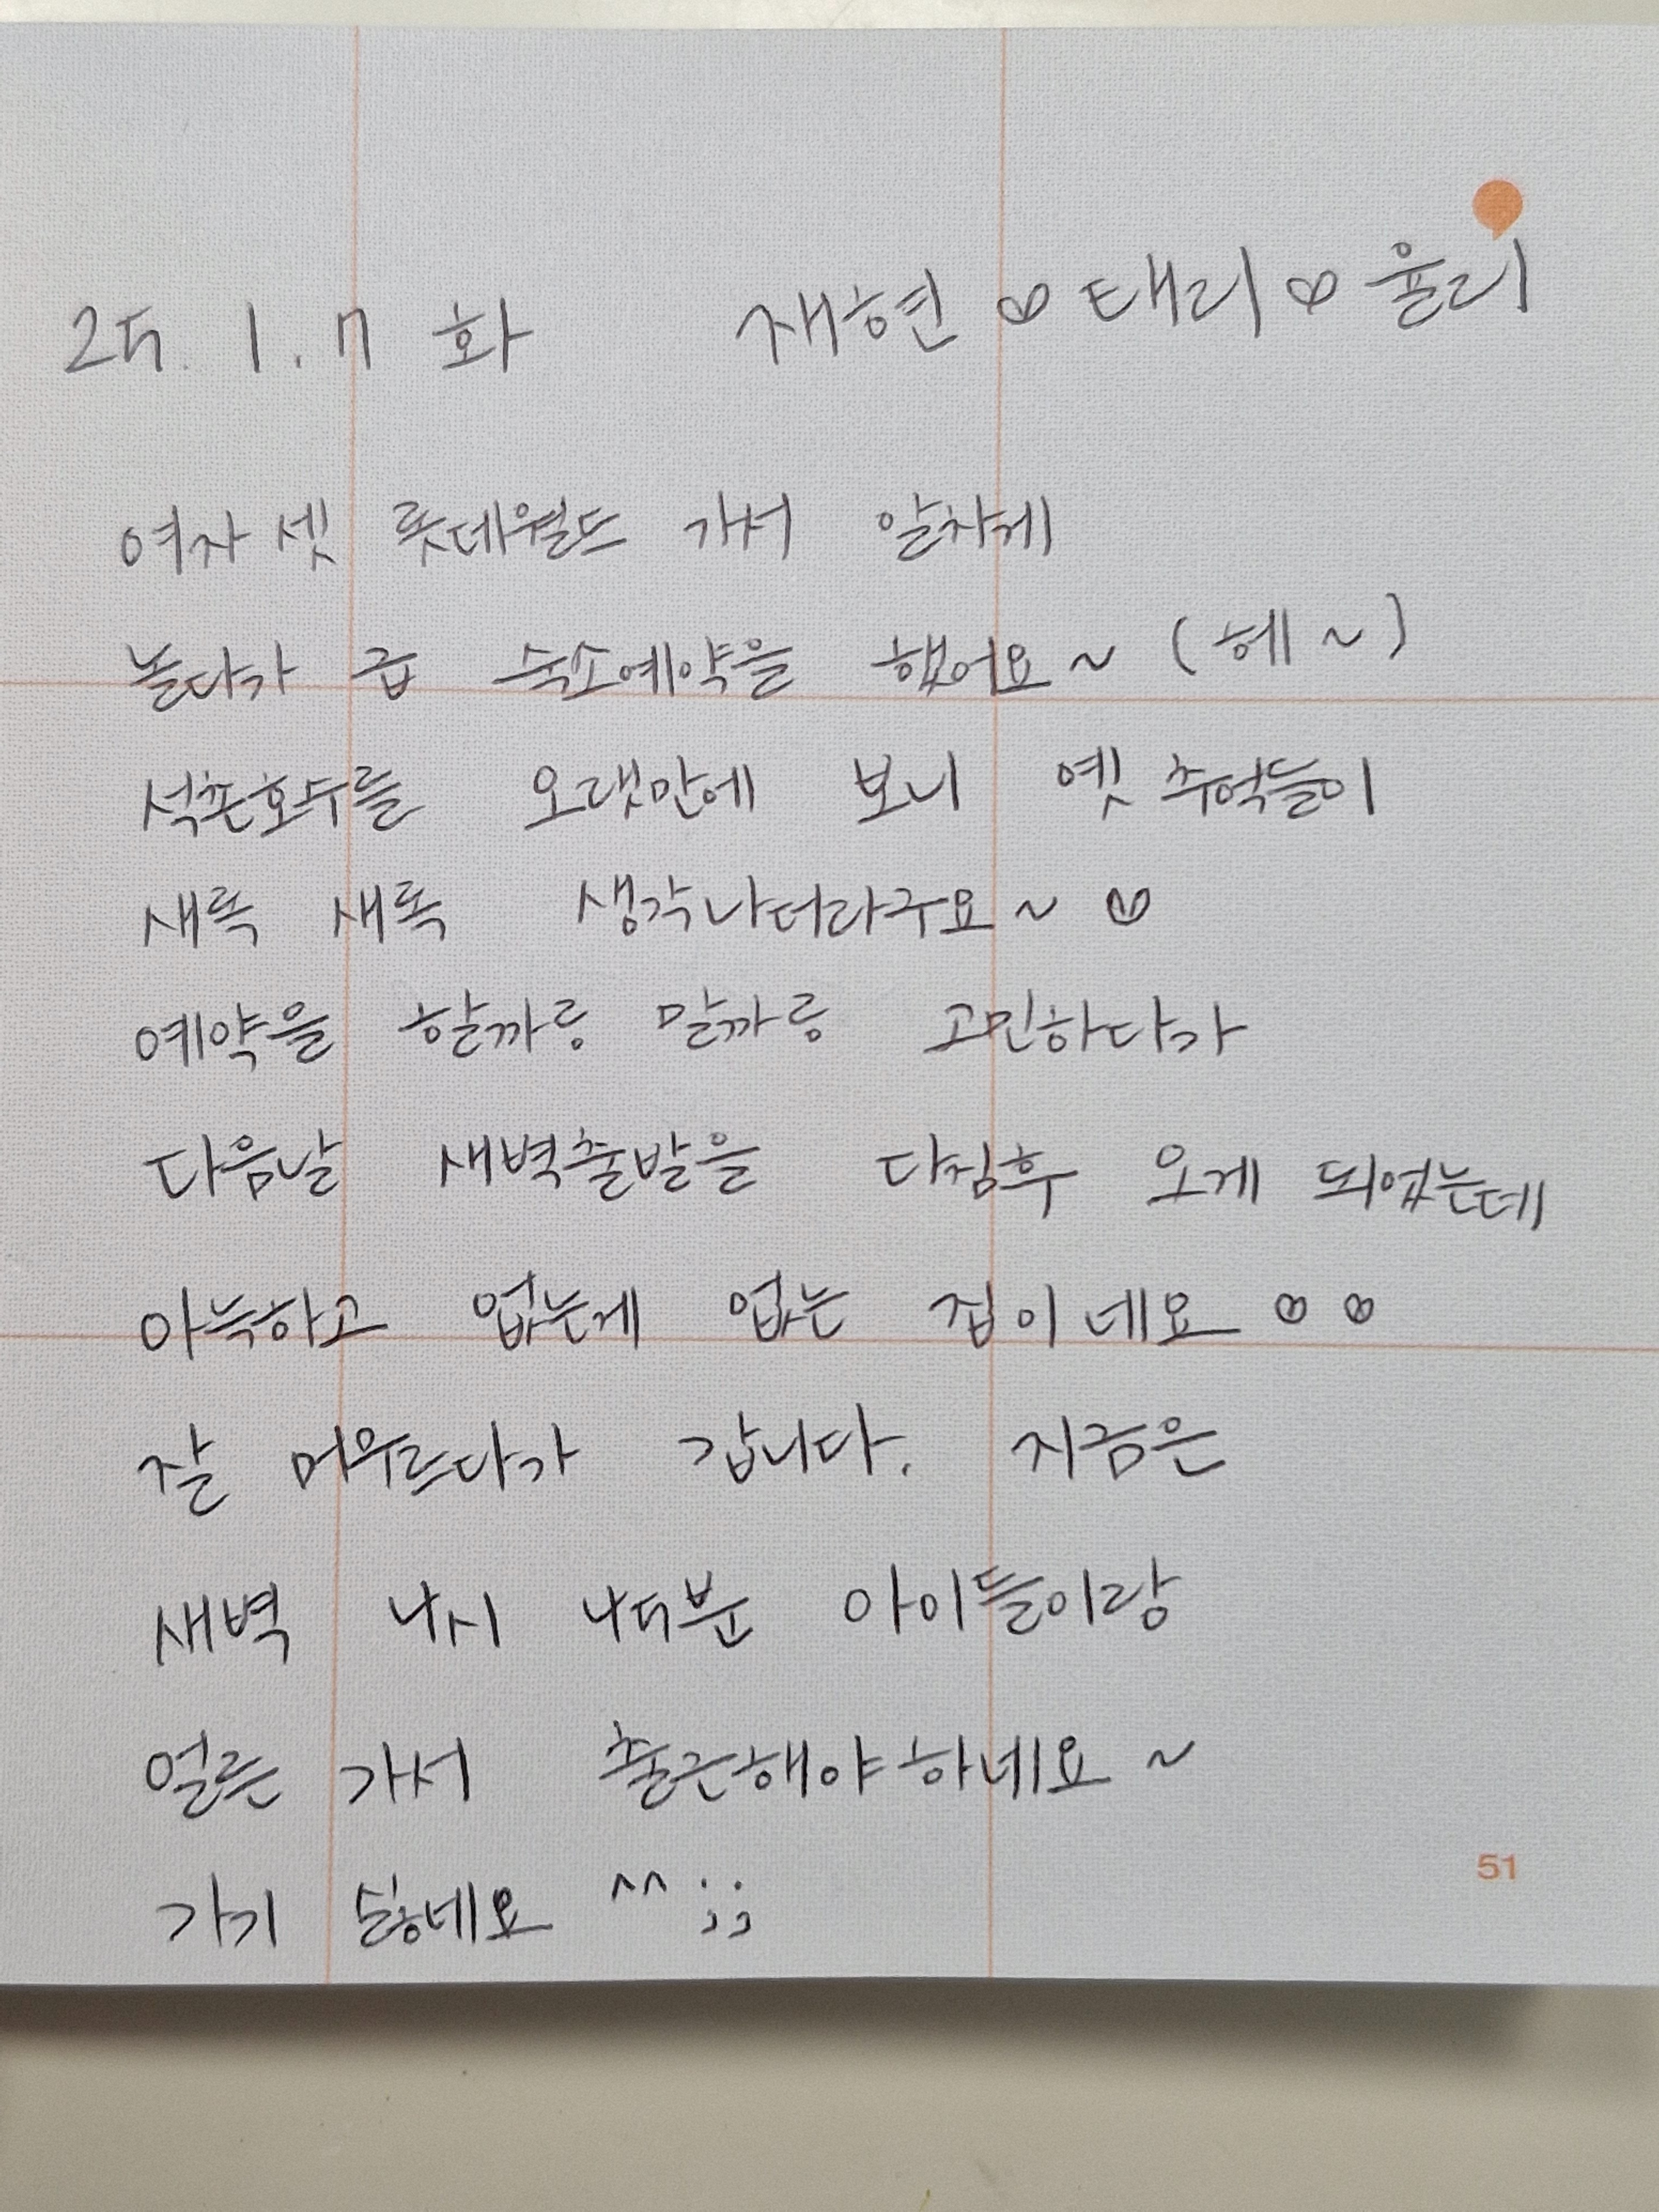 25. 1. 7 화 재현 ♡ 태리 ♡ 율리
여자 셋 롯데월드 가서 알차게
놀다가 급 숙소예약을 했어요~ (헤~)
석촌호수를 오랫만에 보니 옛 추억들이
새록 새록 생각나더라구요~ ♡
예약을 할까릉 말까릉 고민하다가
다음날 새벽출발을 다짐후 오게 되었는데
아늑하고 없는게 없는 집이네요 ♡ ♡
잘 머무르다가 갑니다. 지금은
새벽 4시 45분 아이들이랑
얼른 가서 출근해야하네요~
가기 싫네요 ^^;;
51